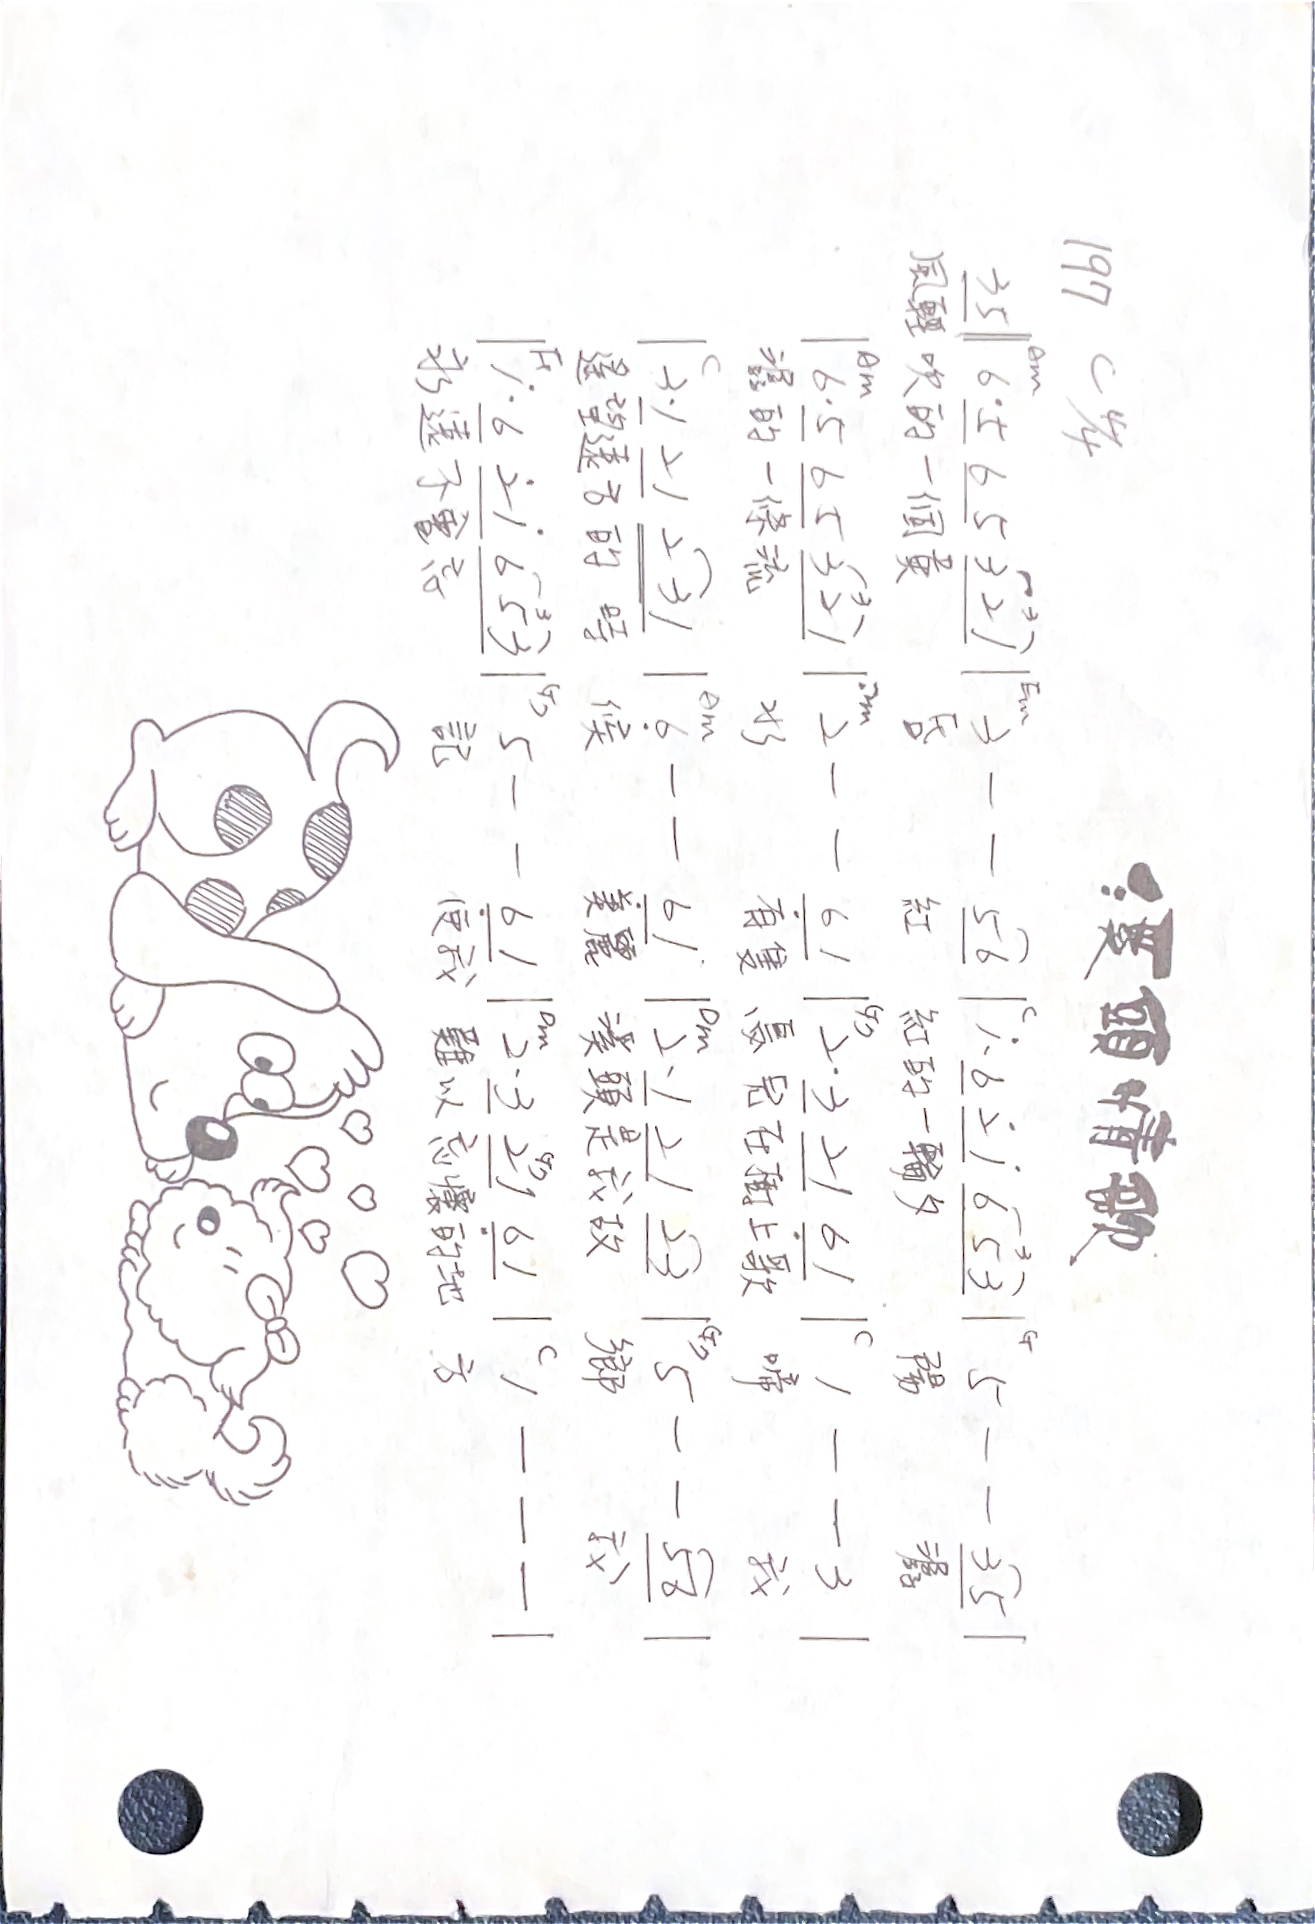 溪頭情歌
197 C 4/4
Am Em C G
35 ‖ 6·5 65 321 | 3 — — 56 | i·6 2i 653 | 5 — — 35 |
風輕吹的一個黃 昏 紅 紅的一輪夕 陽 潺
Am Dm G7 C
| 6·5 65 321 | 2 — — 61 | 2·3 21 61 | 1 — — 3 |
潺的一條流 水 有隻鳥兒在樹上歌 啼 我
C Am Dm G7
| 3·1 21 231 | 6 — — 61 | 2·1 21 23 | 5 — — 56 |
遙望遠方的時 候 美麗 溪頭是我故 鄉 我
F G7 Dm G7 C
| i·6 2i 653 | 5 — — 61 | 2·3 21 61 | 1 — — — |
永遠不會忘 記 使我 難以忘懷的地 方